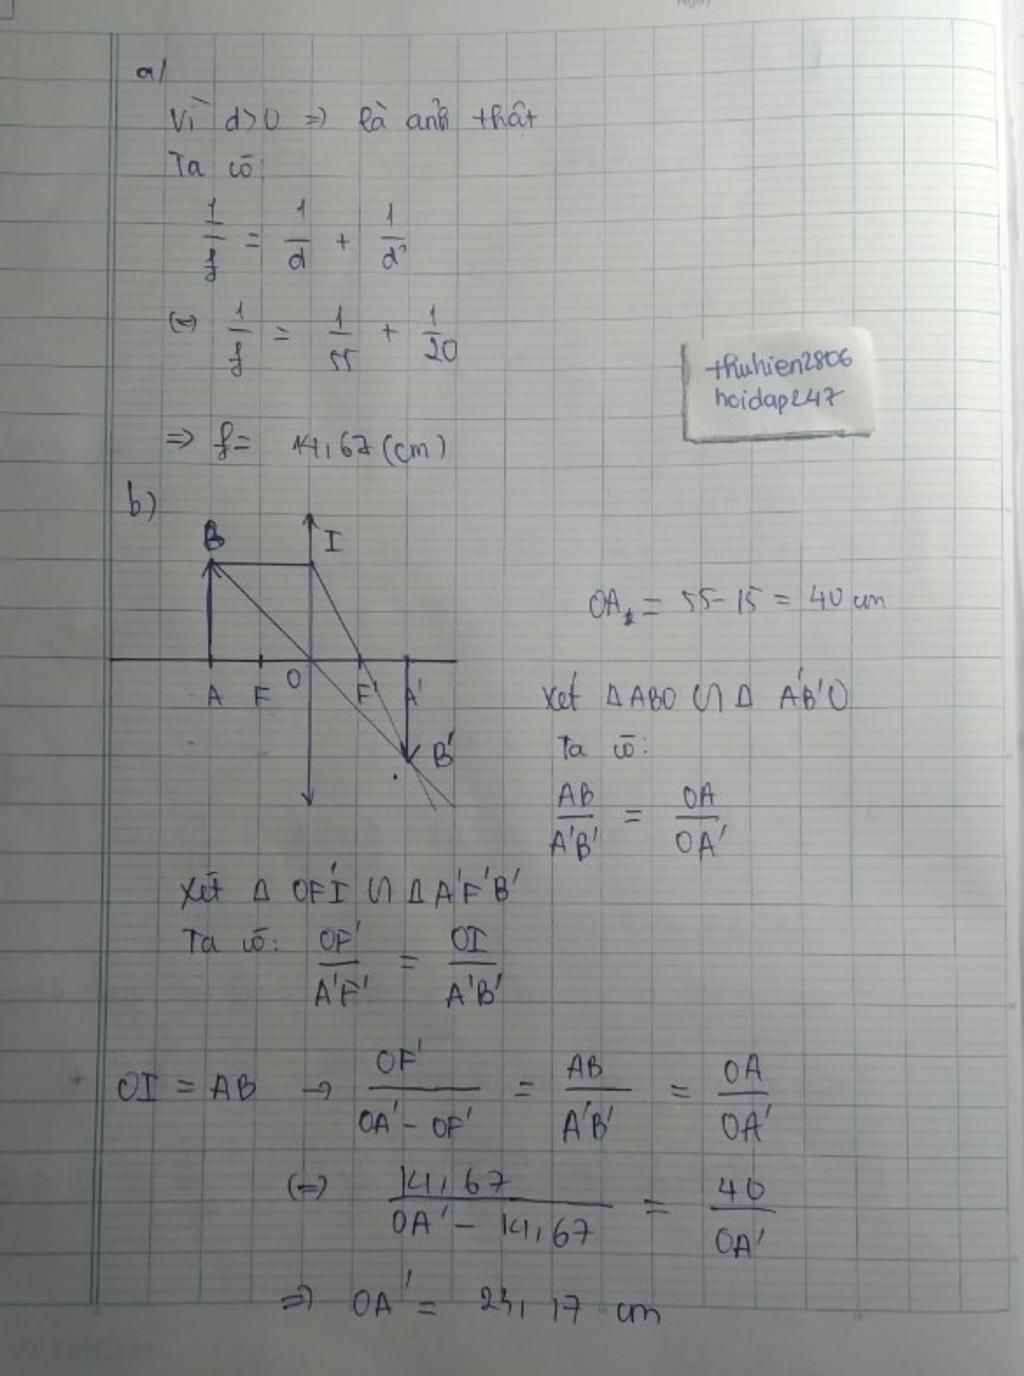 a/
Vì d>0 => là ảnh thật
Ta có:
1/f = 1/d + 1/d'
(=) 1/f = 1/55 + 1/20
=> f = 14,67 (cm)
thuhien2806
hoidap247
b)
B I
A F O F' A'
B'
OA₁ = 55 - 15 = 40 cm
Xét Δ ABO ∽ Δ A'B'O
Ta có:
AB/A'B' = OA/OA'
Xét Δ OF'I ∽ Δ A'F'B'
Ta có: OF'/A'F' = OI/A'B'
OI = AB → OF'/(OA' - OF') = AB/A'B' = OA/OA'
(=) 14,67/(OA' - 14,67) = 40/OA'
=> OA' = 23,17 cm